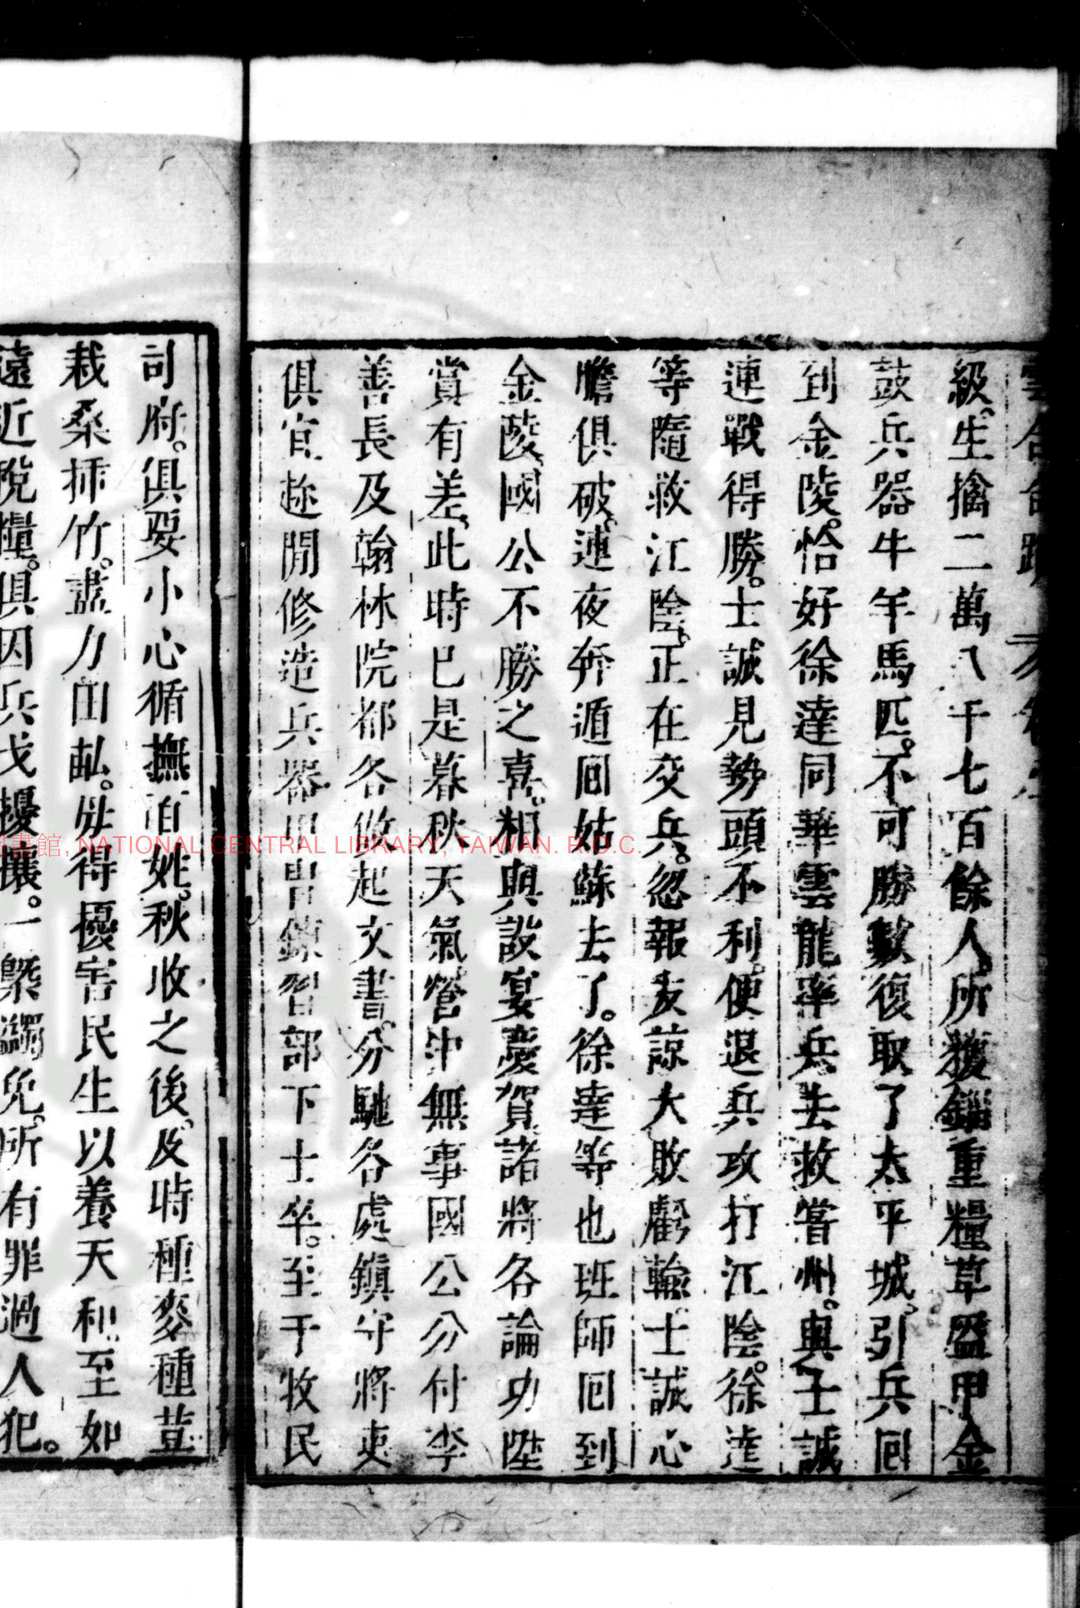 級。生擒二萬八千七百餘人。所獲輜重糧草盔甲金
鼓兵器牛羊馬匹。不可勝數。復取了太平城。引兵囘
到金陵。恰好徐達同華雲龍率兵去救嘗州。與士誠
連戰得勝。士誠見勢頭不利。便退兵攻打江陰。徐達
等隨救江陰。正在交兵。忽報友諒大敗虧輸。士誠心
膽俱破。連夜奔遁囘姑蘇去了。徐達等也班師囘到
金陵。國公不勝之喜。相與設宴慶賀。諸將各論功陞
賞有差。此時已是暮秋天氣。營中無事。國公分付李
善長及翰林院都各做起文書。分馳各處鎮守將吏
俱宜趂閒修造兵器甲冑。鍊習部下士卒。至于牧民
司府。俱要小心循撫百姓。秋收之後。及時種麥種荳
栽桑揷竹。盡力田畝。毋得擾害民生以養天和。至如
遠近稅糧。俱因兵戈擾攘。一槩蠲免。所有罪過人犯。
國家圖書館, NATIONAL CENTRAL LIBRARY, TAIWAN. R.O.C.